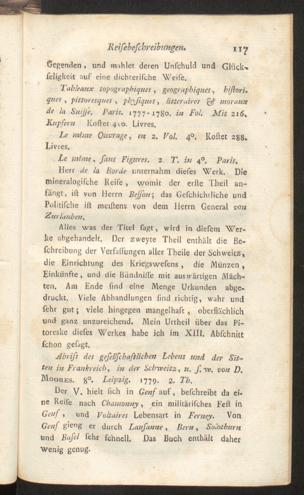 Reisebeschreibungen. 117
Gegenden, und mahlet deren Unschuld und Glück-
seligkeit auf eine dichterische Weise.
Tableaux topographiques, geographiques, histori-
ques, pittoresques, physiques, litteraires & moraux
de la Suisse. Paris. 1777-1780. in Fol. Mit 216.
Kupfern Kostet 410. Livres.
Le même Ouvrage, en 2. Vol. 4°. Kostet 288.
Livres.
Le même, sans Figures. 2. T. in 4°. Paris.
Herr de la Borde unternahm dieses Werk. Die
mineralogische Reise, womit der erste Theil an-
fängt, ist von Herrn Besson; das Geschichtliche und
Politische ist meistens von dem Herrn General von
Zurlauben.
Alles was der Titel sagt, wird in diesem Wer-
ke abgehandelt. Der zweyte Theil enthält die Be-
schreibung der Verfassungen aller Theile der Schweitz,
die Einrichtung des Kriegswesens, die Münzen,
Einkünfte, und die Bündnisse mit auswärtigen Mäch-
ten. Am Ende sind eine Menge Urkunden abge-
druckt. Viele Abhandlungen sind richtig, wahr und
sehr gut; viele hingegen mangelhaft, oberflächlich
und ganz unzureichend. Mein Urtheil über das Pi-
toreske dieses Werkes habe ich im XIII. Abschnitt
schon gesagt.
Abriss des gesellschaftlichen Lebens und der Sit-
ten in Frankreich, in der Schweitz, u. s. w. von D.
MOORES. 8°. Leipzig. 1779. 2. Th.
Der V. hielt sich in Genf auf, beschreibt da ei-
ne Reise nach Chamouny, ein militärisches Fest in
Genf, und Voltaires Lebensart in Ferney. Von
Genf gieng er durch Lausanne, Bern, Solothurn
und Basel sehr schnell. Das Buch enthält daher
wenig genug.